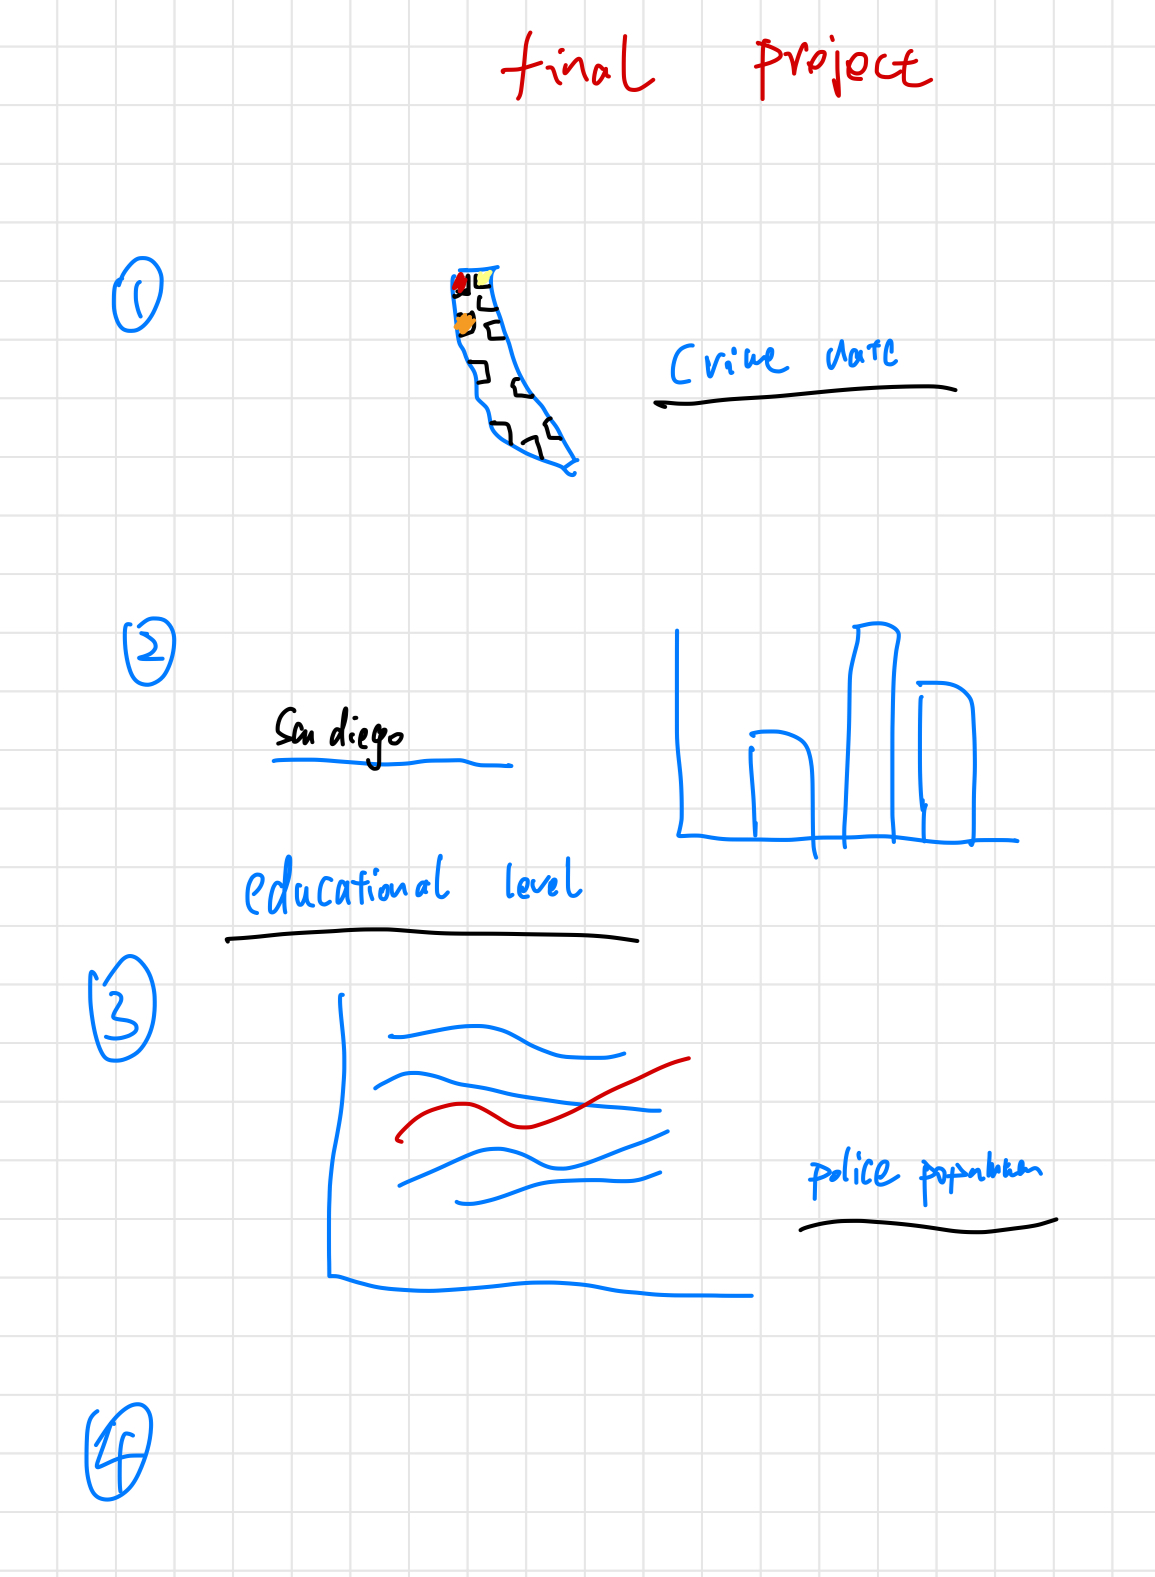 final project
①
Crime date
②
San diego
educational level
③
police population
④